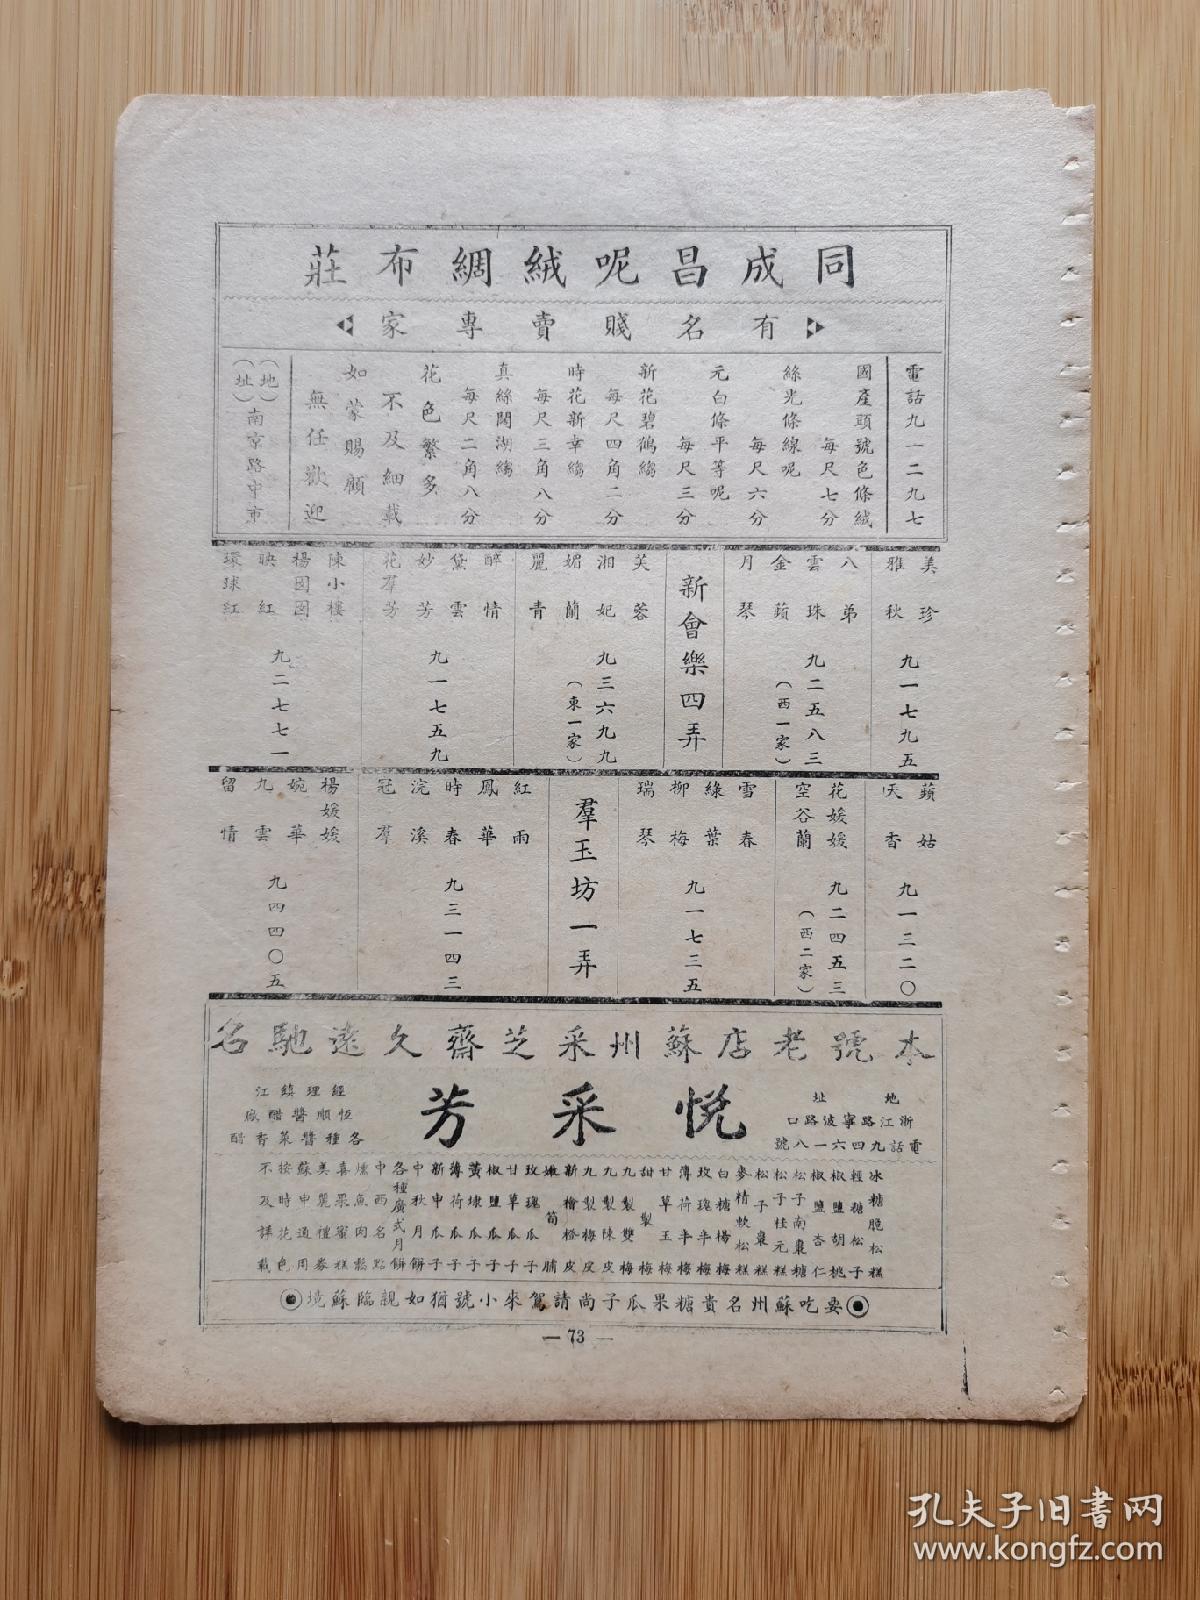 同成昌呢絨綢布莊
有名賤賣專家
電話九一二九七
國產頭號色條絨
每尺七分
絲光條線呢
每尺六分
元白條平等呢
每尺三分
新花碧鶴縐
每尺四角二分
時花新幸縐
每尺三角八分
真絲闊湖縐
每尺二角八分
花色繁多
不及細載
如蒙賜顧
無任歡迎
（地址）南京路中市
美珍
雅秋
九一七九五
八弟
雲珠
金蘋
月琴
九二五八三
（西一家）
新會樂四弄
芙蓉
湘妃
媚蘭
麗青
九三六九九
（東一家）
醉情
黛雲
妙芳
花羣芳
九一七五九
陳小樓
楊囡囡
映紅
環球紅
九二七七一
蘋姑
天香
九一三二〇
花媛媛
空谷蘭
九二四五三
（西二家）
雪春
綠葉
柳梅
瑞琴
九一七三五
羣玉坊一弄
紅雨
鳳華
時春
浣溪
冠羣
九三一四三
楊媛媛
婉華
九雲
留情
九四四〇五
本號老店蘇州采芝齋久遠馳名
地址
浙江路寧波路口
電話九四六一八號
悅采芳
經理鎮江
恆順醬醋廠
各種醬菜香醋
冰糖脆松糕
輕糖松子
椒鹽胡桃
椒鹽杏仁
松子南棗糖
松子桂元糕
松子棗糕
麥精軟松糕
白糖楊梅
玫瑰半梅
薄荷半梅
甘草王梅
甜製梅
九製雙梅
九製陳皮
九製梅皮
新檜橙皮
嫩筍脯
玫瑰瓜子
甘草瓜子
椒鹽瓜子
黃埭瓜子
薄荷瓜子
新申瓜子
中秋月餅
各種廣式月餅
中西名點
燻魚肉鬆
喜果蜜糕
美麗禮券
蘇申通用
按時花色
不及詳載
要吃蘇州名貴糖果瓜子尚請駕來小號猶如親臨蘇境
— 73 —
孔夫子旧书网
www.kongfz.com